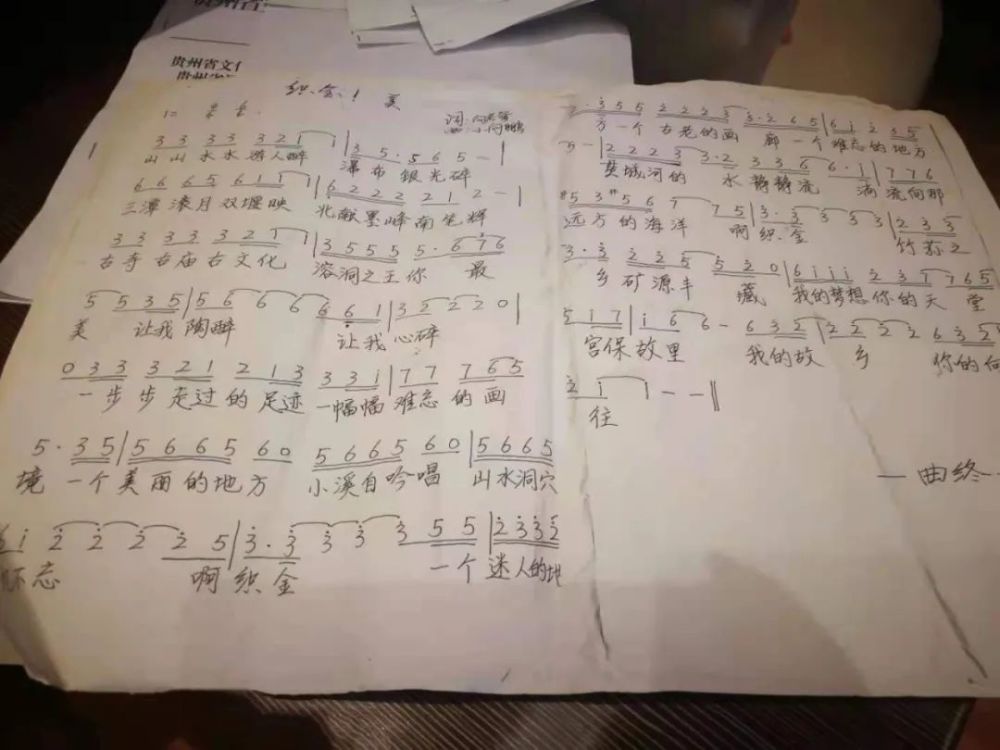 贵州省文化
织金！美
1=
词：
曲：
3 3 3 3 3 2 1 1 | 3 5 · 5 6 5 - |
山山水水游人醉 瀑布银光碎
6 6 6 5 6 1 1 | 6 2 2 2 2 1 2 - |
三潭滚月双堰映 北献墨峰南笔辉
3 3 3 3 3 2 1 1 | 3 5 5 5 5 · 6 7 6
古寺古庙古文化 溶洞之王你 最
5 5 3 5 | 5 6 6 6 6 6 1 | 3 2 2 2 0 |
美 让我陶醉 让我心碎
0 3 3 3 2 1 2 1 3 3 3 1 | 7 7 7 6 5
一步步走过的足迹 一幅幅难忘的画
5 · 3 5 | 5 6 6 5 6 0 5 6 6 5 6 0 | 5 6 6 5
境 一个美丽的地方 小溪自吟唱 山水洞穴
i 2 2 2 2 5 | 3 · 3 3 3 3 5 5 | 2 3 3 2
态 啊织金 一个迷人的地
· 3 5 5 2 2 2 3 3 · 2 6 5 | 6 i 2 3 5
方一个古老的画 廊一个难忘的地方
5 - | 2 2 2 3 3 · 2 3 3 6 6 · i | 7 7 6
城河的 水静静流 淌流向那
#5 3 #5 6 7 7 5 | 3 · 3 3 5 3 | 2 3 3
远方的海洋 啊织金 竹荪之
3 · 2 2 2 5 5 2 0 | 6 i i i 2 3 1 7 6 5
乡矿源丰 藏 我的梦想你的天 堂
5 1 7 | i 6 6 - 6 3 2 | 2 2 2 2 6 3 2
宫保故里 我的故 乡 你的
2 i 1 - - ‖
往
一曲终